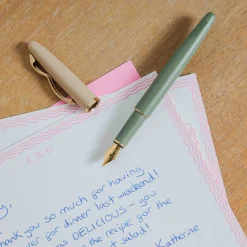 y,
hank you so much for having
er for dinner last weekend!
as DELICIOUS - you
the recipe for the
t salad!
Katherine